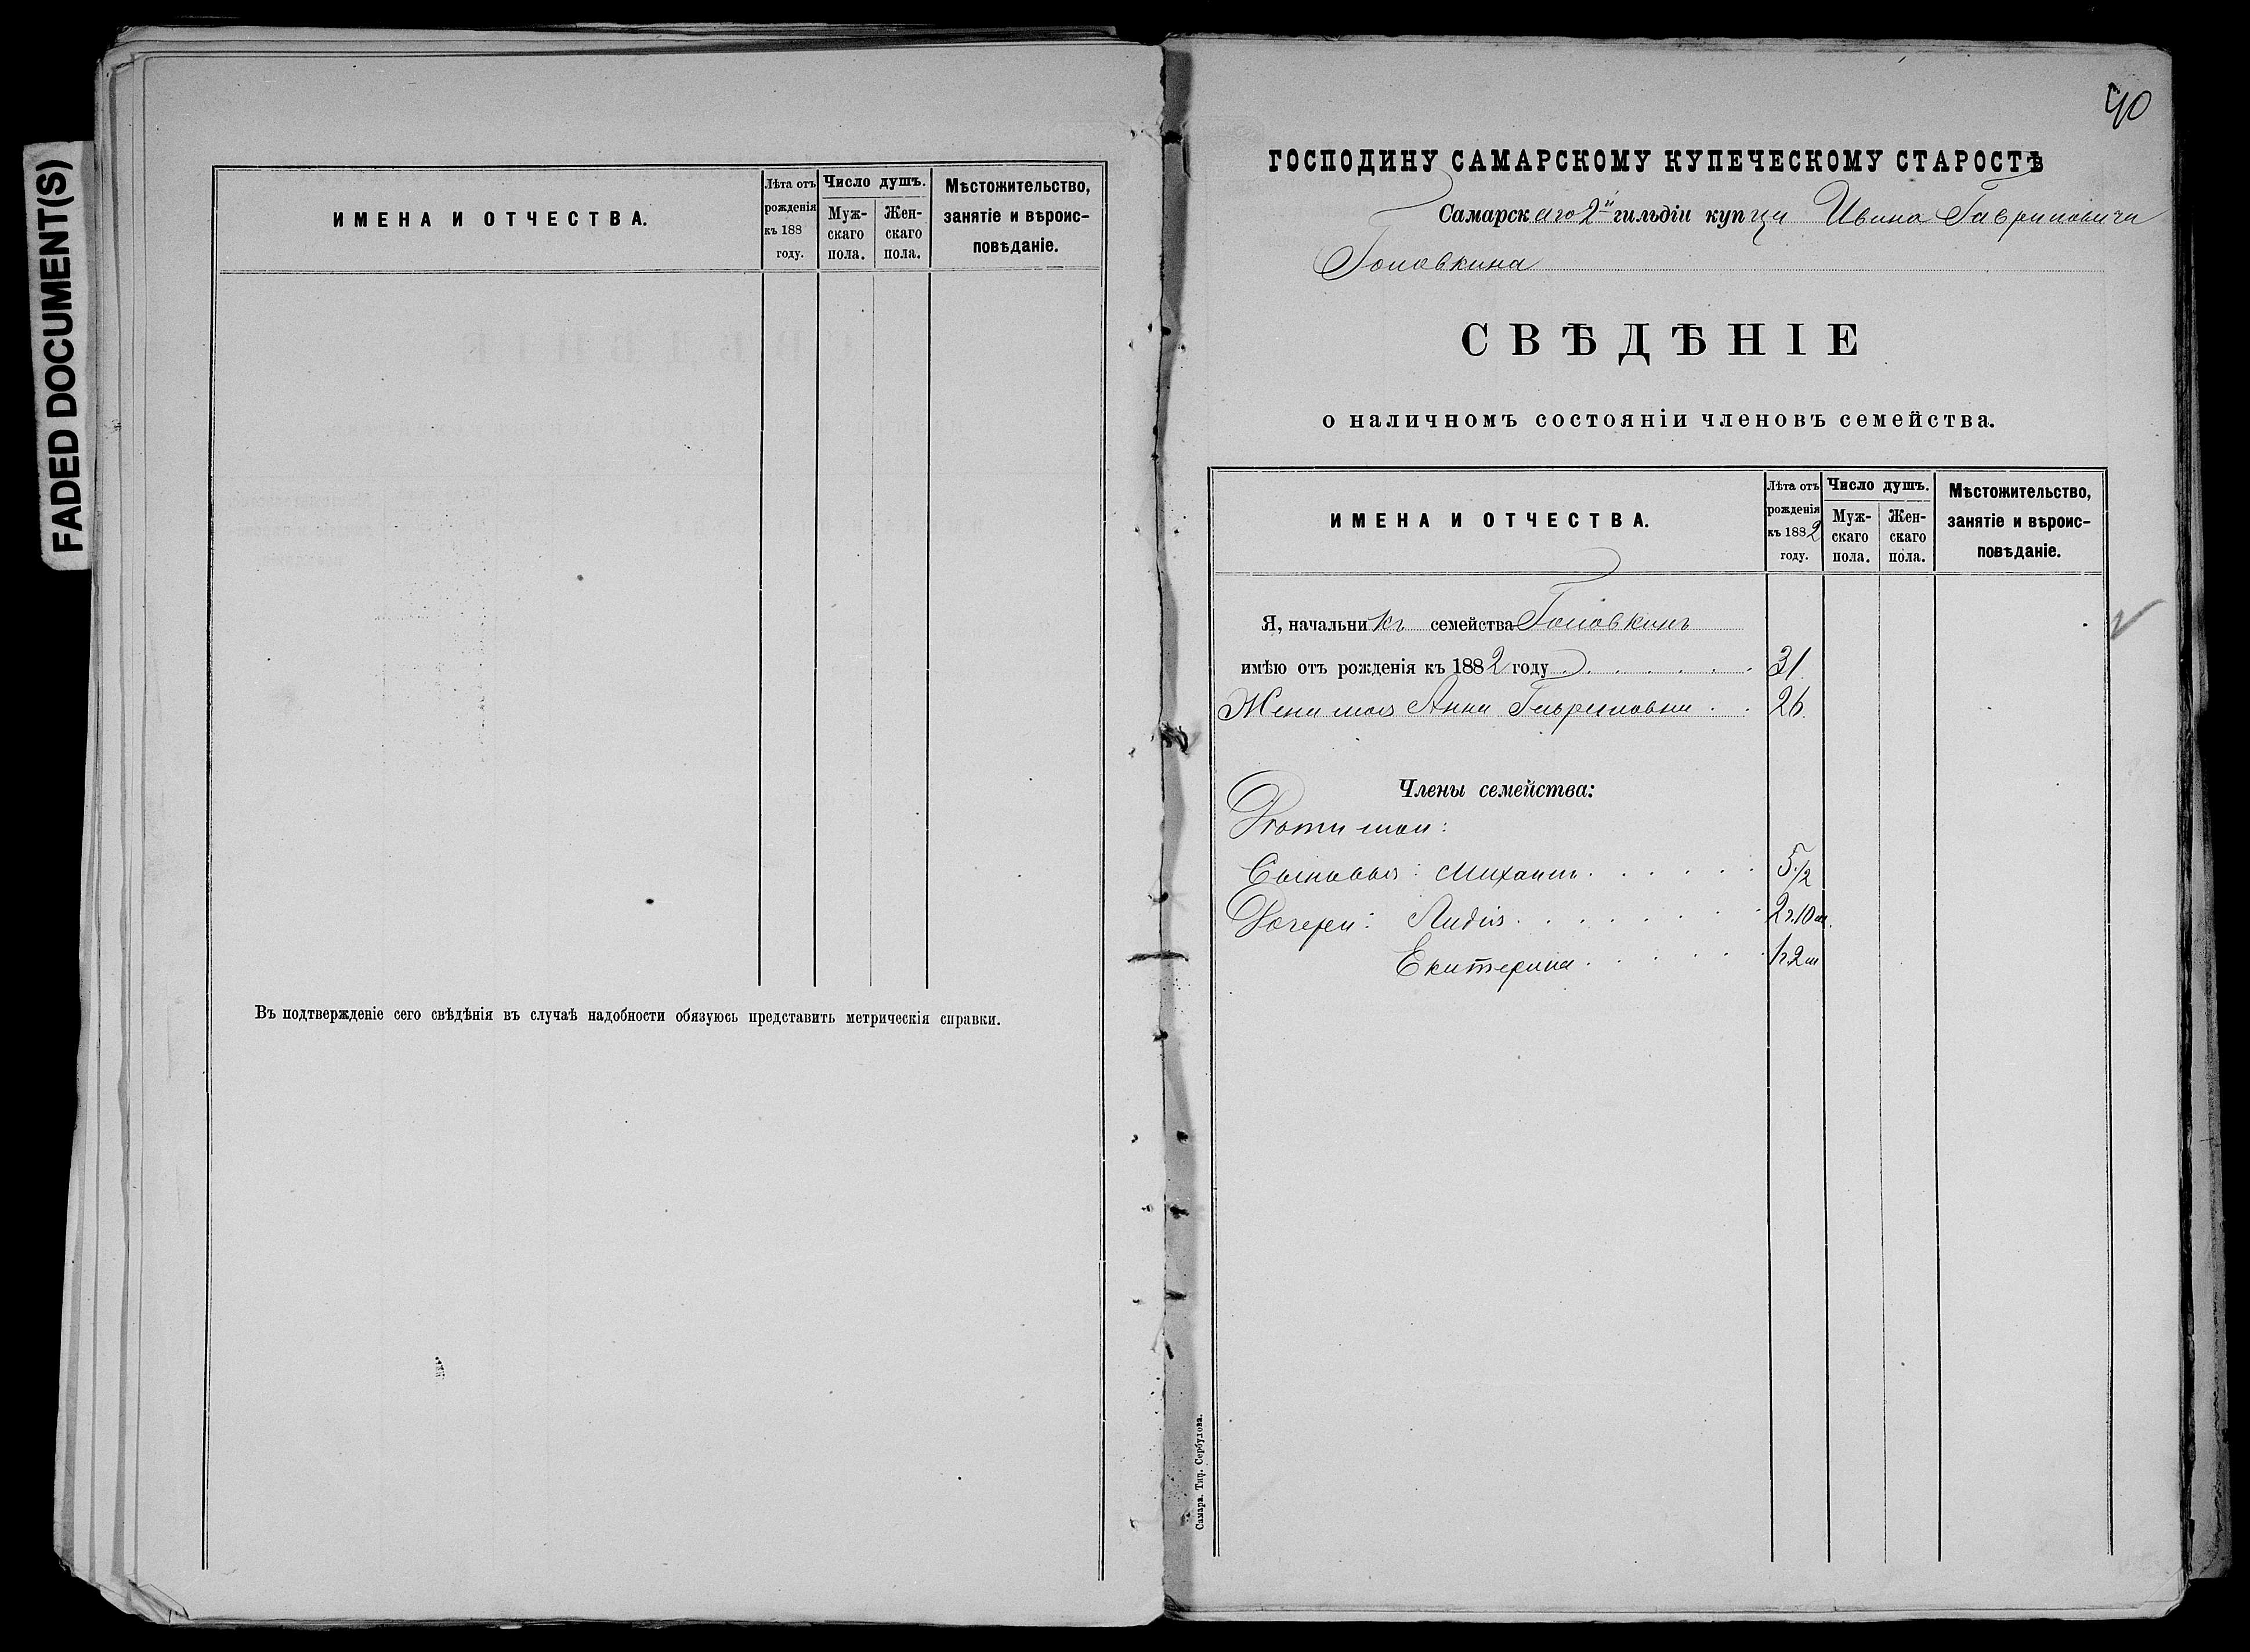 FADED DOCUMENT(S)
ИМЕНА И ОТЧЕСТВА.
Лѣта отъ рожденія къ 188 году.
Число душъ.
Мужскаго пола.
Женскаго пола.
Мѣстожительство, занятіе и вѣроисповѣданіе.
Въ подтвержденіе сего свѣдѣнія въ случаѣ надобности обязуюсь представить метрическія справки.
40
ГОСПОДИНУ САМАРСКОМУ КУПЕЧЕСКОМУ СТАРОСТѢ
Самарскаго 2й гильдіи купца Ивана Гавриловича
Головкина
СВѢДѢНІЕ
о наличномъ состояніи членовъ семейства.
ИМЕНА И ОТЧЕСТВА.
Лѣта отъ рожденія къ 1882 году.
Число душъ.
Мужскаго пола.
Женскаго пола.
Мѣстожительство, занятіе и вѣроисповѣданіе.
Я, начальникъ семейства Головкинъ
имѣю отъ рожденія къ 1882 году 31
Жена моя Анна Гавриловна 26
Члены семейства:
Дѣти мои:
Сыновья: Михаилъ 5 1/2
Дочери: Лидія 2 г. 10 м.
Екатерина 1 г 2 м
Самара. Тип. Сербулова.